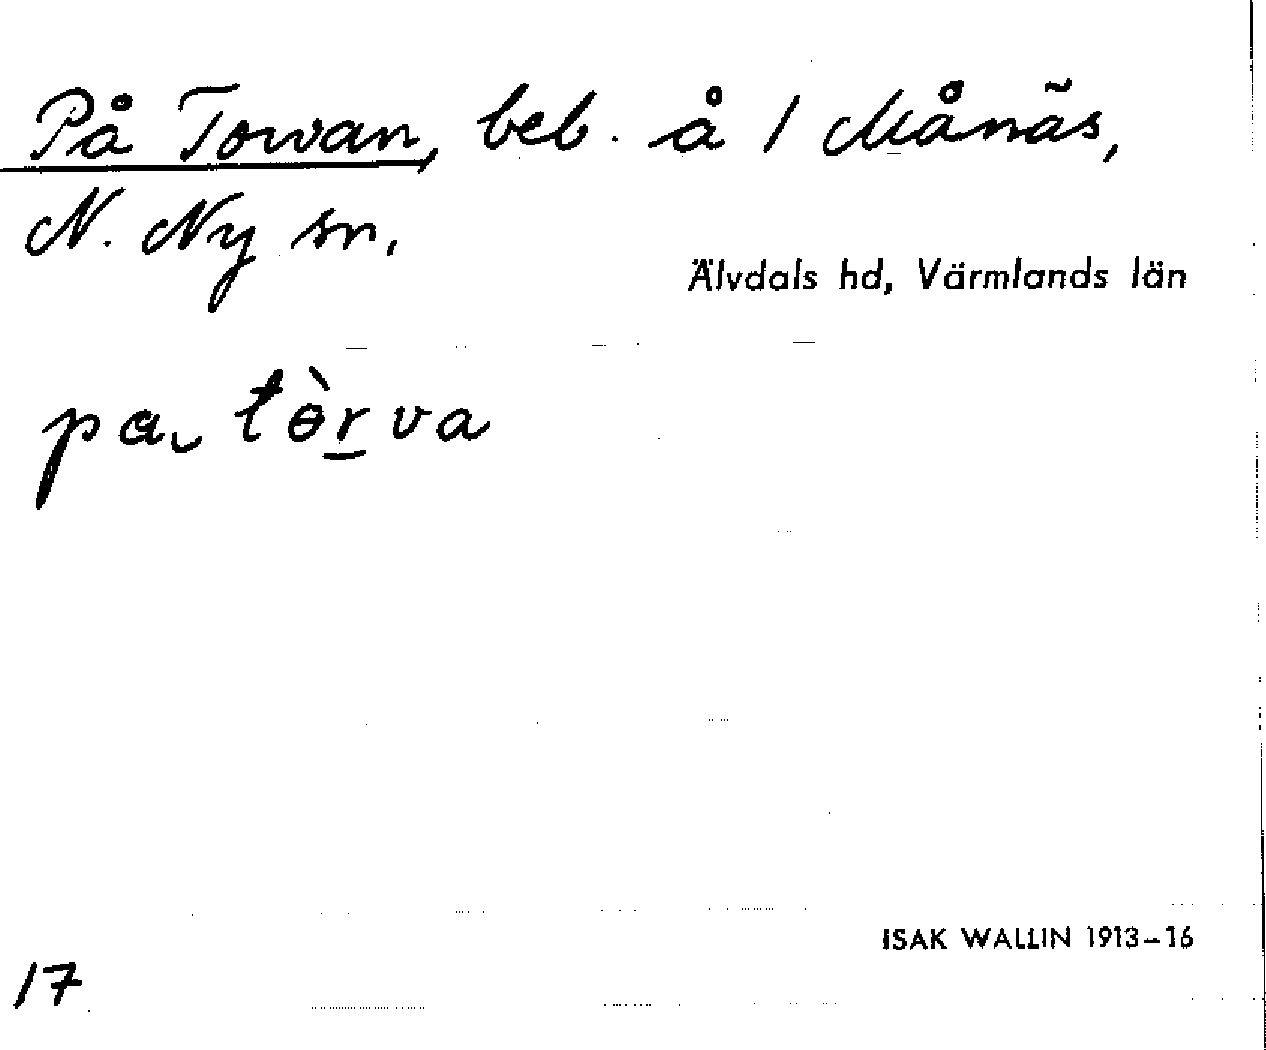 På Torvan, beb. å 1 Månäs,
N. Ny sn.
Älvdals hd, Värmlands län
pa tɵ̀r̲va
ISAK WALLIN 1913-16
17